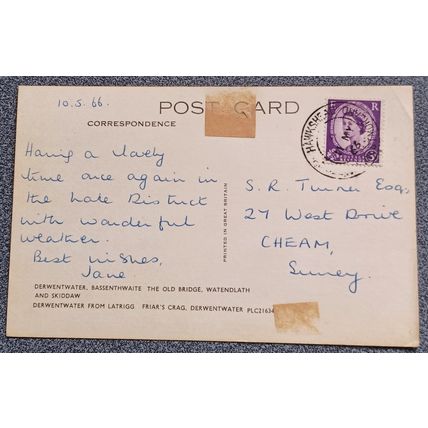 10.5.66.
POST CARD
CORRESPONDENCE
Having a lovely
time once again in
the Lake District
with wonderful
weather.
Best wishes,
Jane
S. R. Turner Esq,
27 West Drive
CHEAM,
Surrey.
PRINTED IN GREAT BRITAIN
E R
HAWKSHEAD
DERWENTWATER, BASSENTHWAITE THE OLD BRIDGE, WATENDLATH
AND SKIDDAW
DERWENTWATER FROM LATRIGG FRIAR'S CRAG, DERWENTWATER PLC21634